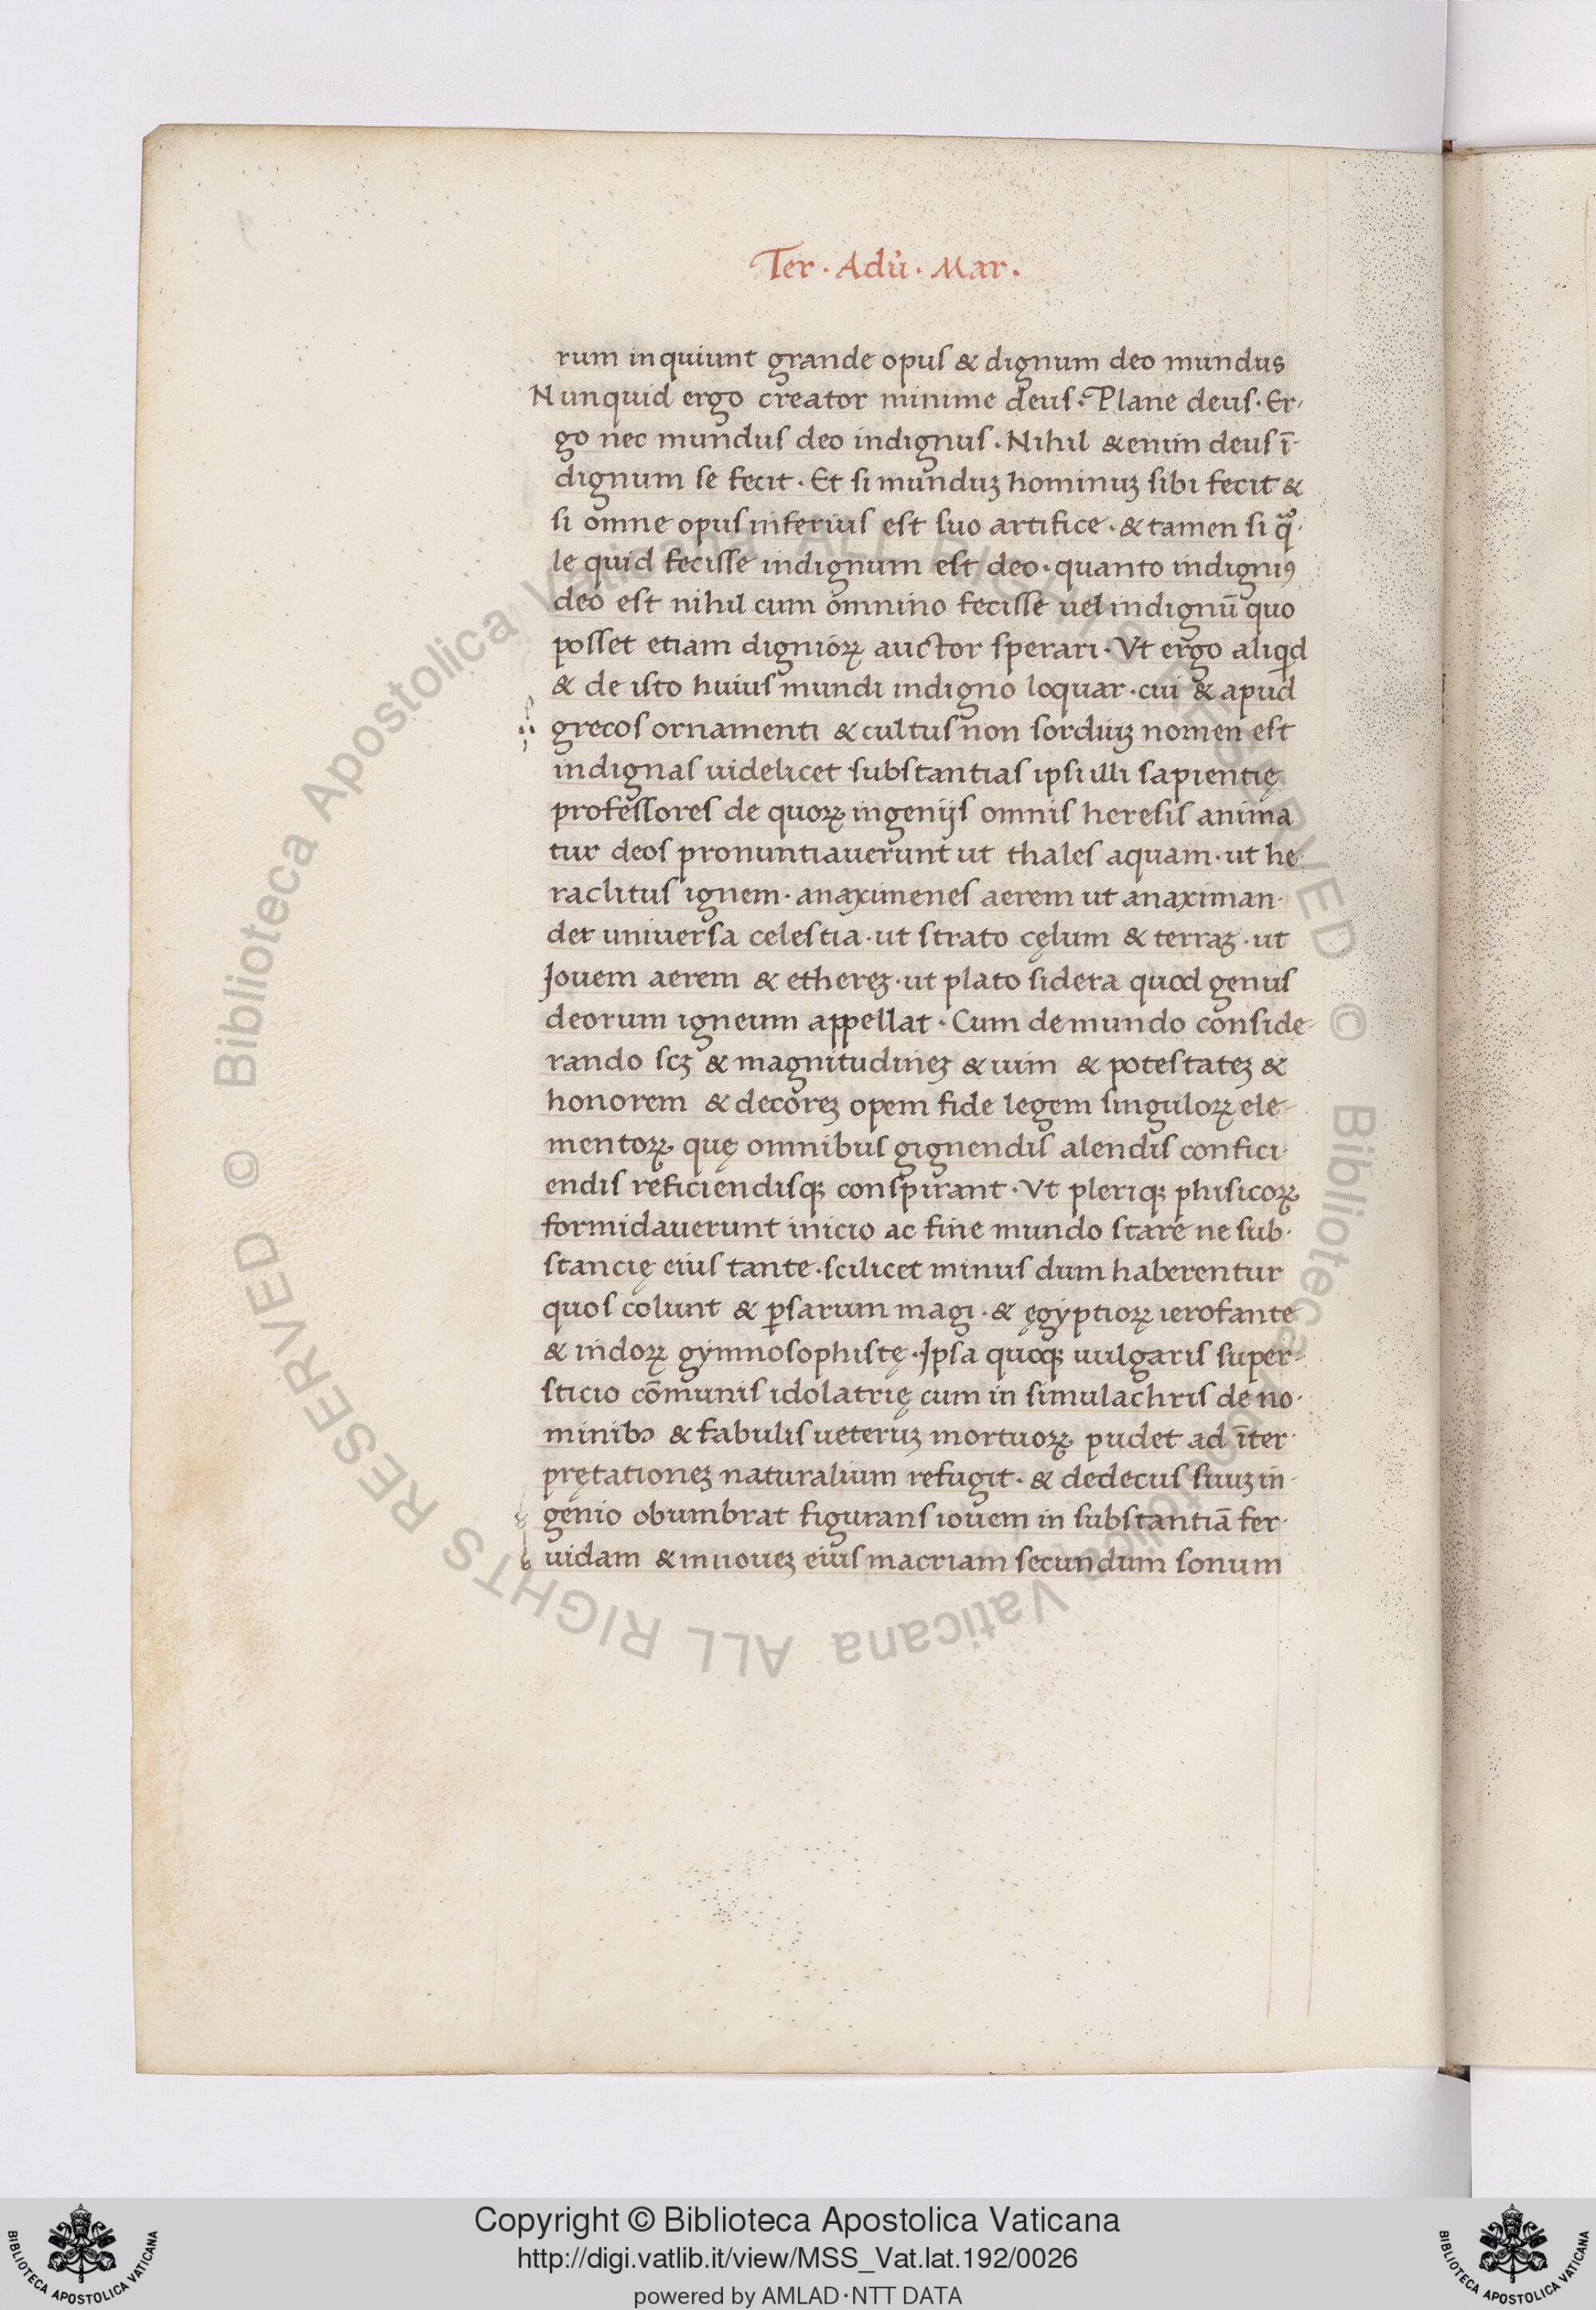 Ter · Adu̓ · Mar ·
rum inquiunt grande opus & dignum deo mundus
Nunquid ergo creator minime deus · Plane deus · Er-
go nec mundus deo indignus · Nihil & enim deus ī-
dignum se fecit · Et si munduȝ hominuȝ sibi fecit &
si omne opus inferius est suo artifice · & tamen si q̃a-
le quid fecisse indignum est deo · quanto indigniꝰ
deo est nihil cum omnino fecisse uel indignū quo
posset etiam digniorꝝ auctor sperari · Vt ergo aliqd
& de isto huius mundi indigno loquar · cui & apud
grecos ornamenti & cultus non sorduiȝ nomen est
indignas uidelicet substantias ipsi illi sapientię
professores de quorꝝ ingenijs omnis heresis anima
tur deos pronuntiauerunt ut thales aquam · ut he
raclitus ignem · anaximenes aerem ut anaximan-
der universa celestia · ut strato cęlum & terraȝ · ut
Jouem aerem & ethereȝ · ut plato sidera quod genus
deorum igneum appellat · Cum de mundo conside-
rando scȝ & magnitudineȝ & uim & potestateȝ &
honorem & decoreȝ opem fide legem singulorꝝ ele-
mentorꝝ quę omnibus gignendis alendis confici-
endis reficiendisqȝ conspirant · Vt pleriqȝ phisicorꝝ
formidauerunt inicio ac fine mundo stare ne sub-
stancię eius tante · scilicet minus dum haberentur
quos colunt & ꝑsarum magi · & ęgyptiorꝝ ierofante
& indorꝝ gymnosophistę · Jpsa quoqȝ uulgaris super-
sticio cōmunis idolatrię cum in simulachris de no-
minibꝰ & fabulis ueteruȝ mortuorꝝ pudet ad īter-
prętationeȝ naturalium refugit · & dedecus suuȝ in-
genio obumbrat figurans iouem in substantiā fer-
uidam & innoueȝ eius macriam secundum sonum
Copyright © Biblioteca Apostolica Vaticana
http://digi.vatlib.it/view/MSS_Vat.lat.192/0026
powered by AMLAD·NTT DATA
BIBLIOTECA APOSTOLICA VATICANA
BIBLIOTECA APOSTOLICA VATICANA
© Biblioteca Apostolica Vaticana ALL RIGHTS RESERVED © Biblioteca Apostolica Vaticana ALL RIGHTS RESERVED